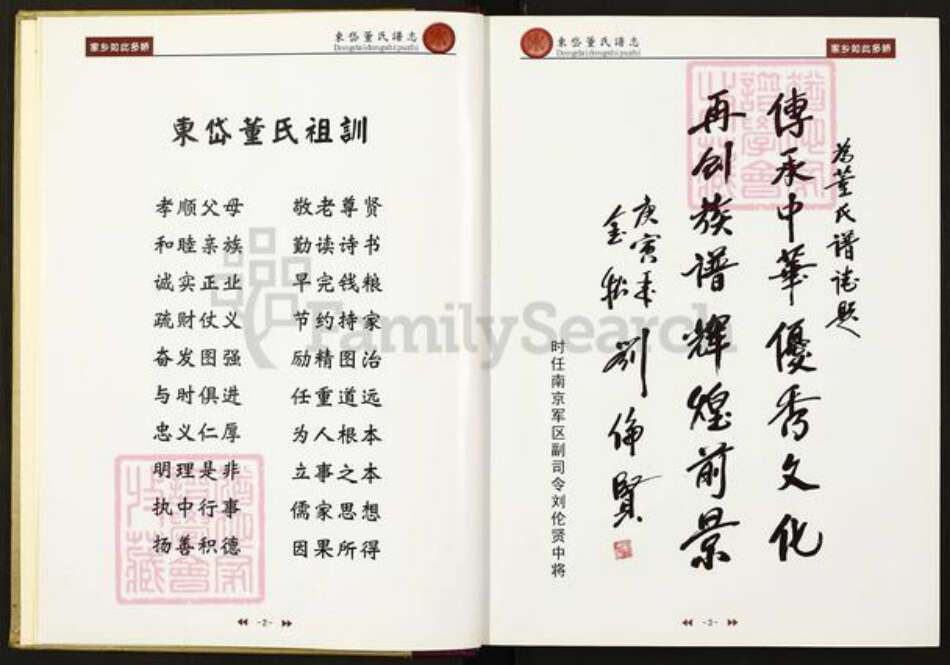 家乡如此多娇
東岱董氏譜志
Dongdaidongshipuzhi
東岱董氏祖訓
孝顺父母 敬老尊贤
和睦亲族 勤读诗书
诚实正业 早完钱粮
疏财仗义 节约持家
奋发图强 励精图治
与时俱进 任重道远
忠义仁厚 为人根本
明理是非 立事之本
执中行事 儒家思想
扬善积德 因果所得
-2-
FamilySearch
東岱董氏譜志
Dongdaidongshipuzhi
家乡如此多娇
為董氏譜誌题
傳承中華優秀文化
再创族谱辉煌前景
庚寅年
刘倫賢
时任南京军区副司令刘伦贤中将
-3-